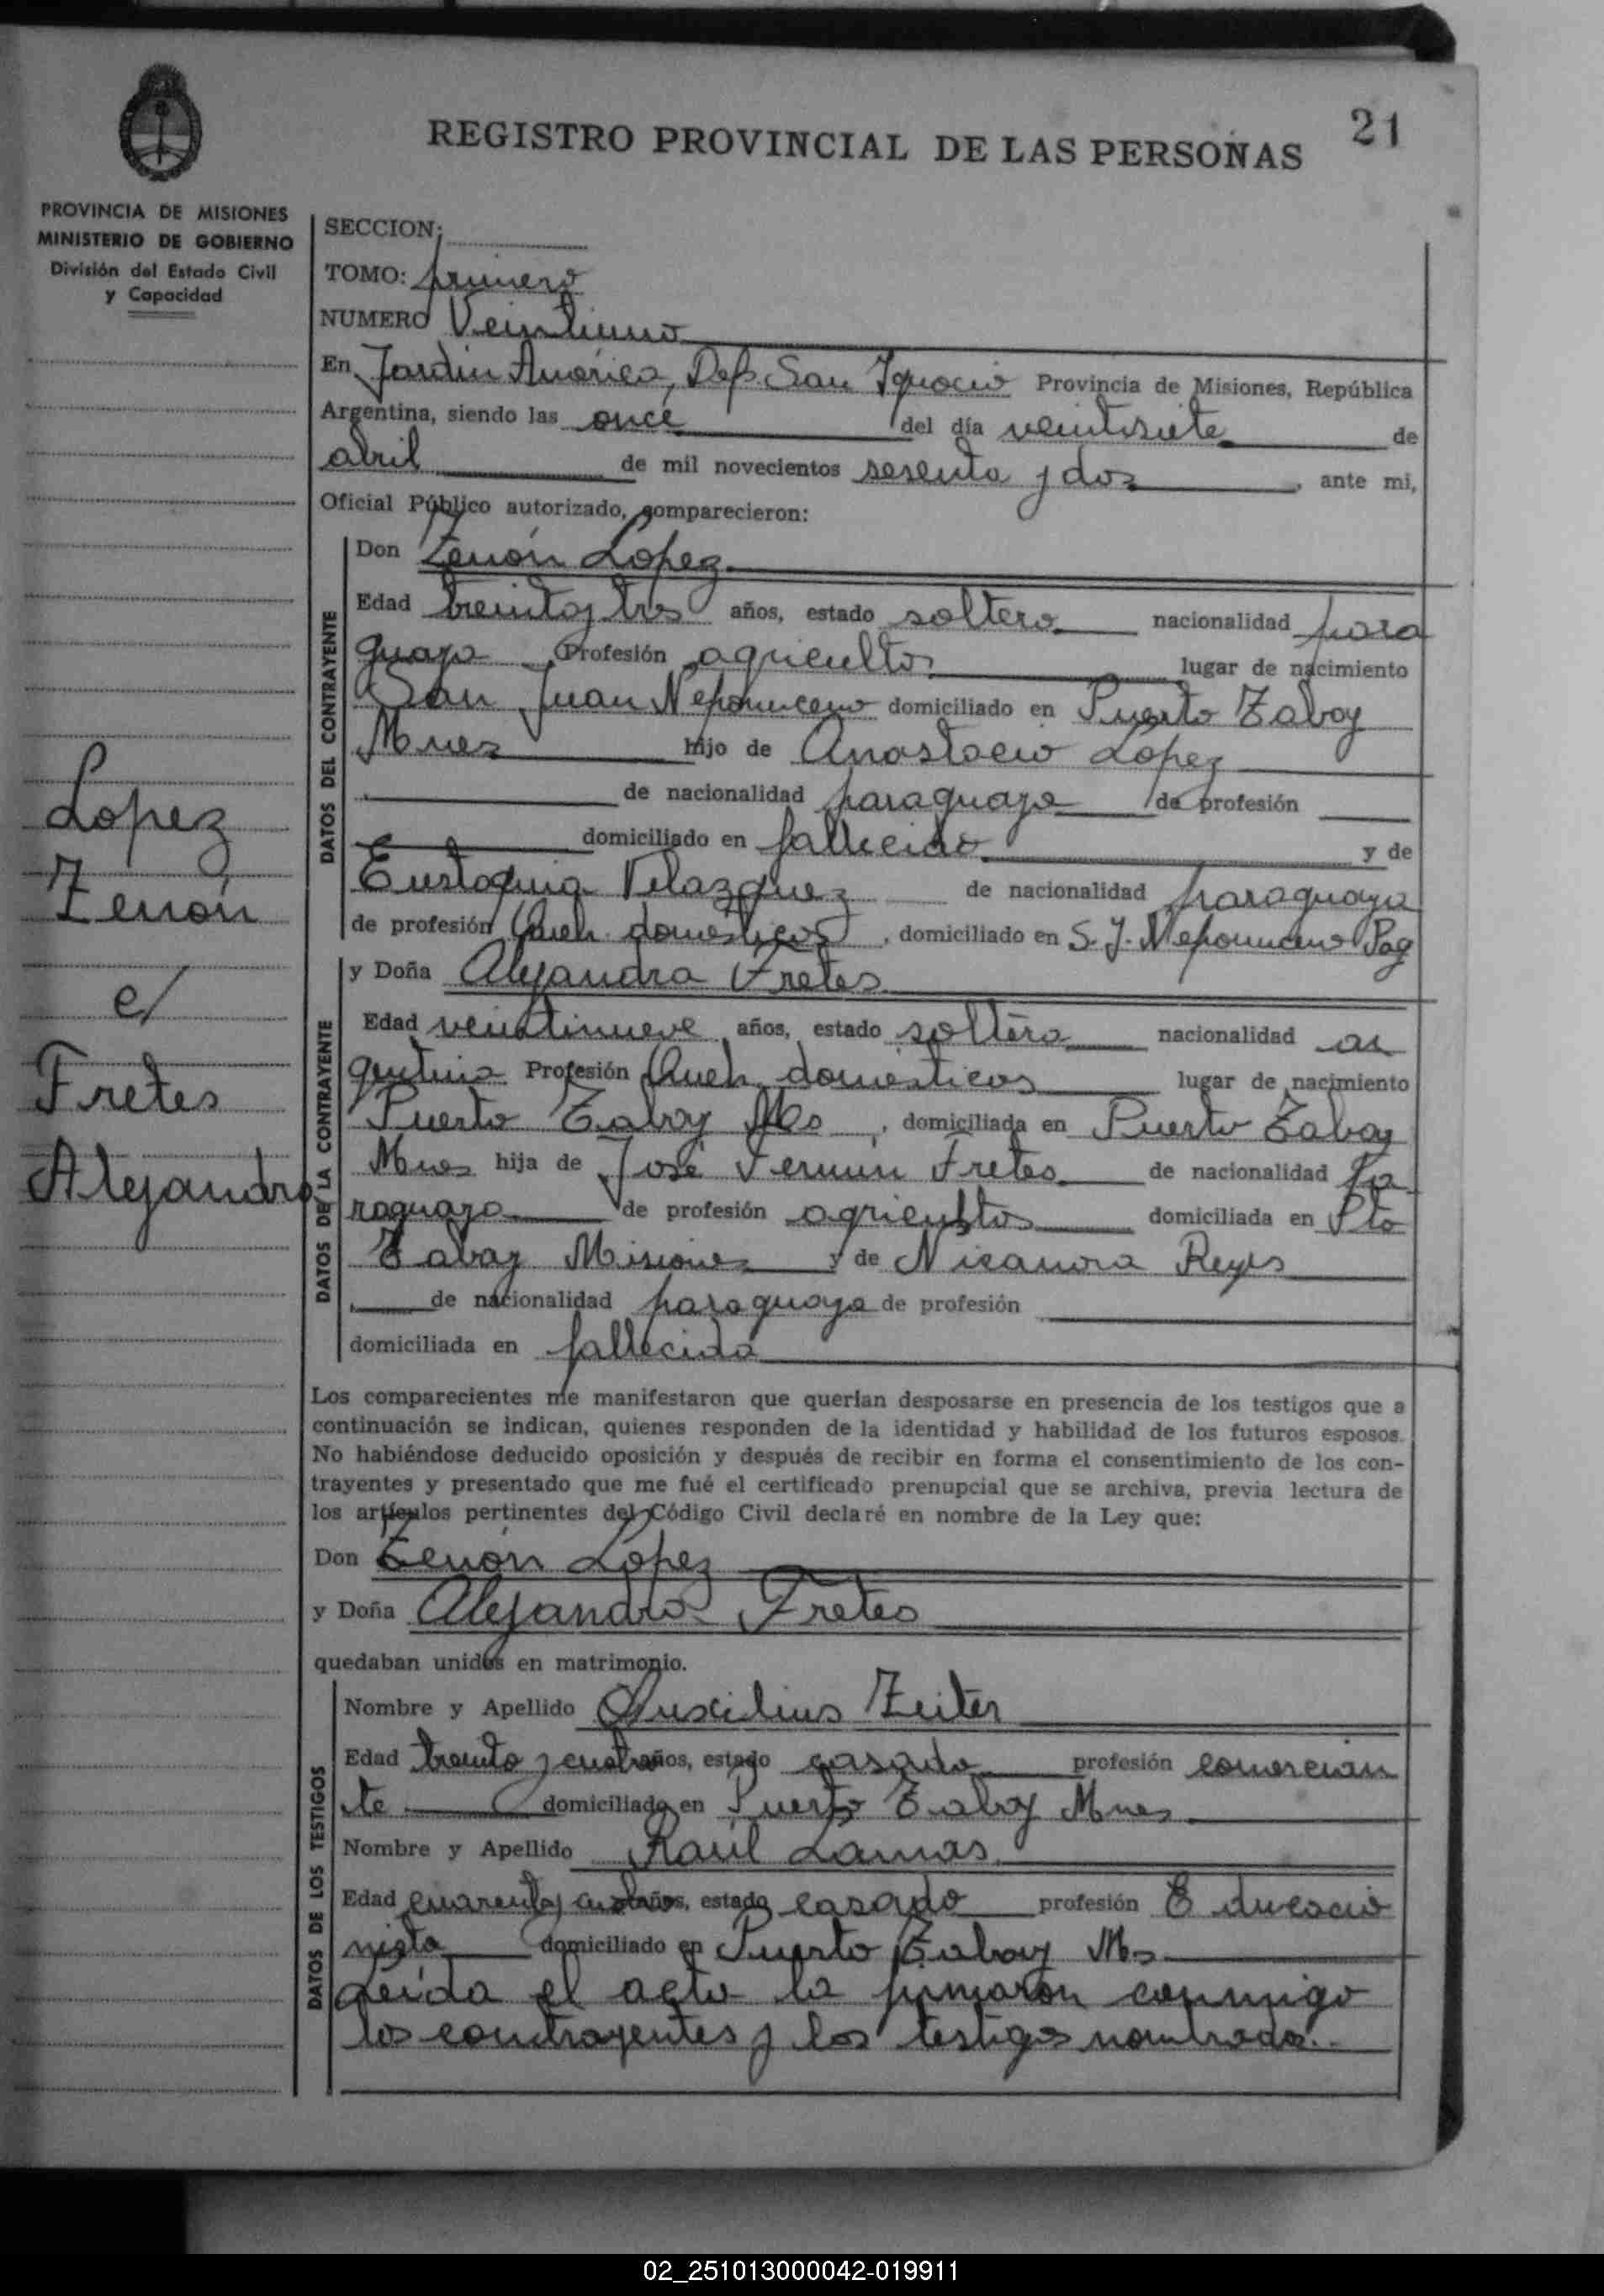 21
REGISTRO PROVINCIAL DE LAS PERSONAS
PROVINCIA DE MISIONES
MINISTERIO DE GOBIERNO
División del Estado Civil
y Capacidad
SECCION:
TOMO: primero
NUMERO Veintiuno
En Jardin América, Dep. San Ignacio Provincia de Misiones, República
Argentina, siendo las once del día veintisiete de
abril de mil novecientos sesenta y dos, ante mi,
Oficial Público autorizado, comparecieron:
DATOS DEL CONTRAYENTE
Don Zenón Lopez
Edad treinta y tres años, estado soltero nacionalidad para
guaya Profesión agricultor lugar de nacimiento
San Juan Nepomuceno domiciliado en Puerto Tabay
Mnes hijo de Anastacio Lopez
de nacionalidad paraguaya de profesión
domiciliado en fallecido y de
Eustaquia Velazquez de nacionalidad paraguaya
de profesión Queh. domésticos, domiciliado en S. J. Nepomuceno Pag
Lopez
Zenón
c/
Fretes
Alejandra
DATOS DE LA CONTRAYENTE
y Doña Alejandra Fretes
Edad veintinueve años, estado soltera nacionalidad ar
gentina Profesión Queh. domésticos lugar de nacimiento
Puerto Tabay Mes, domiciliada en Puerto Tabay
Mnes hija de José Fermin Fretes de nacionalidad Pa
raguaya de profesión agricultor domiciliada en Pto
Tabay Misiones y de Nicanora Reyes
de nacionalidad paraguaya de profesión
domiciliada en fallecida
Los comparecientes me manifestaron que querían desposarse en presencia de los testigos que a
continuación se indican, quienes responden de la identidad y habilidad de los futuros esposos.
No habiéndose deducido oposición y después de recibir en forma el consentimiento de los con-
trayentes y presentado que me fué el certificado prenupcial que se archiva, previa lectura de
los artículos pertinentes del Código Civil declaré en nombre de la Ley que:
Don Zenón Lopez
y Doña Alejandra Fretes
quedaban unidos en matrimonio.
DATOS DE LOS TESTIGOS
Nombre y Apellido Auxilius Zeiter
Edad treinta y cuatro años, estado casado profesión comercian
te domiciliado en Puerto Tabay Mnes
Nombre y Apellido Raúl Lamas
Edad cuarenta y cuatro años, estado casado profesión Educacio
nista domiciliado en Puerto Tabay Ms
Leída el acta la firmaron conmigo
los contrayentes y los testigos nombrados.
02_251013000042-019911